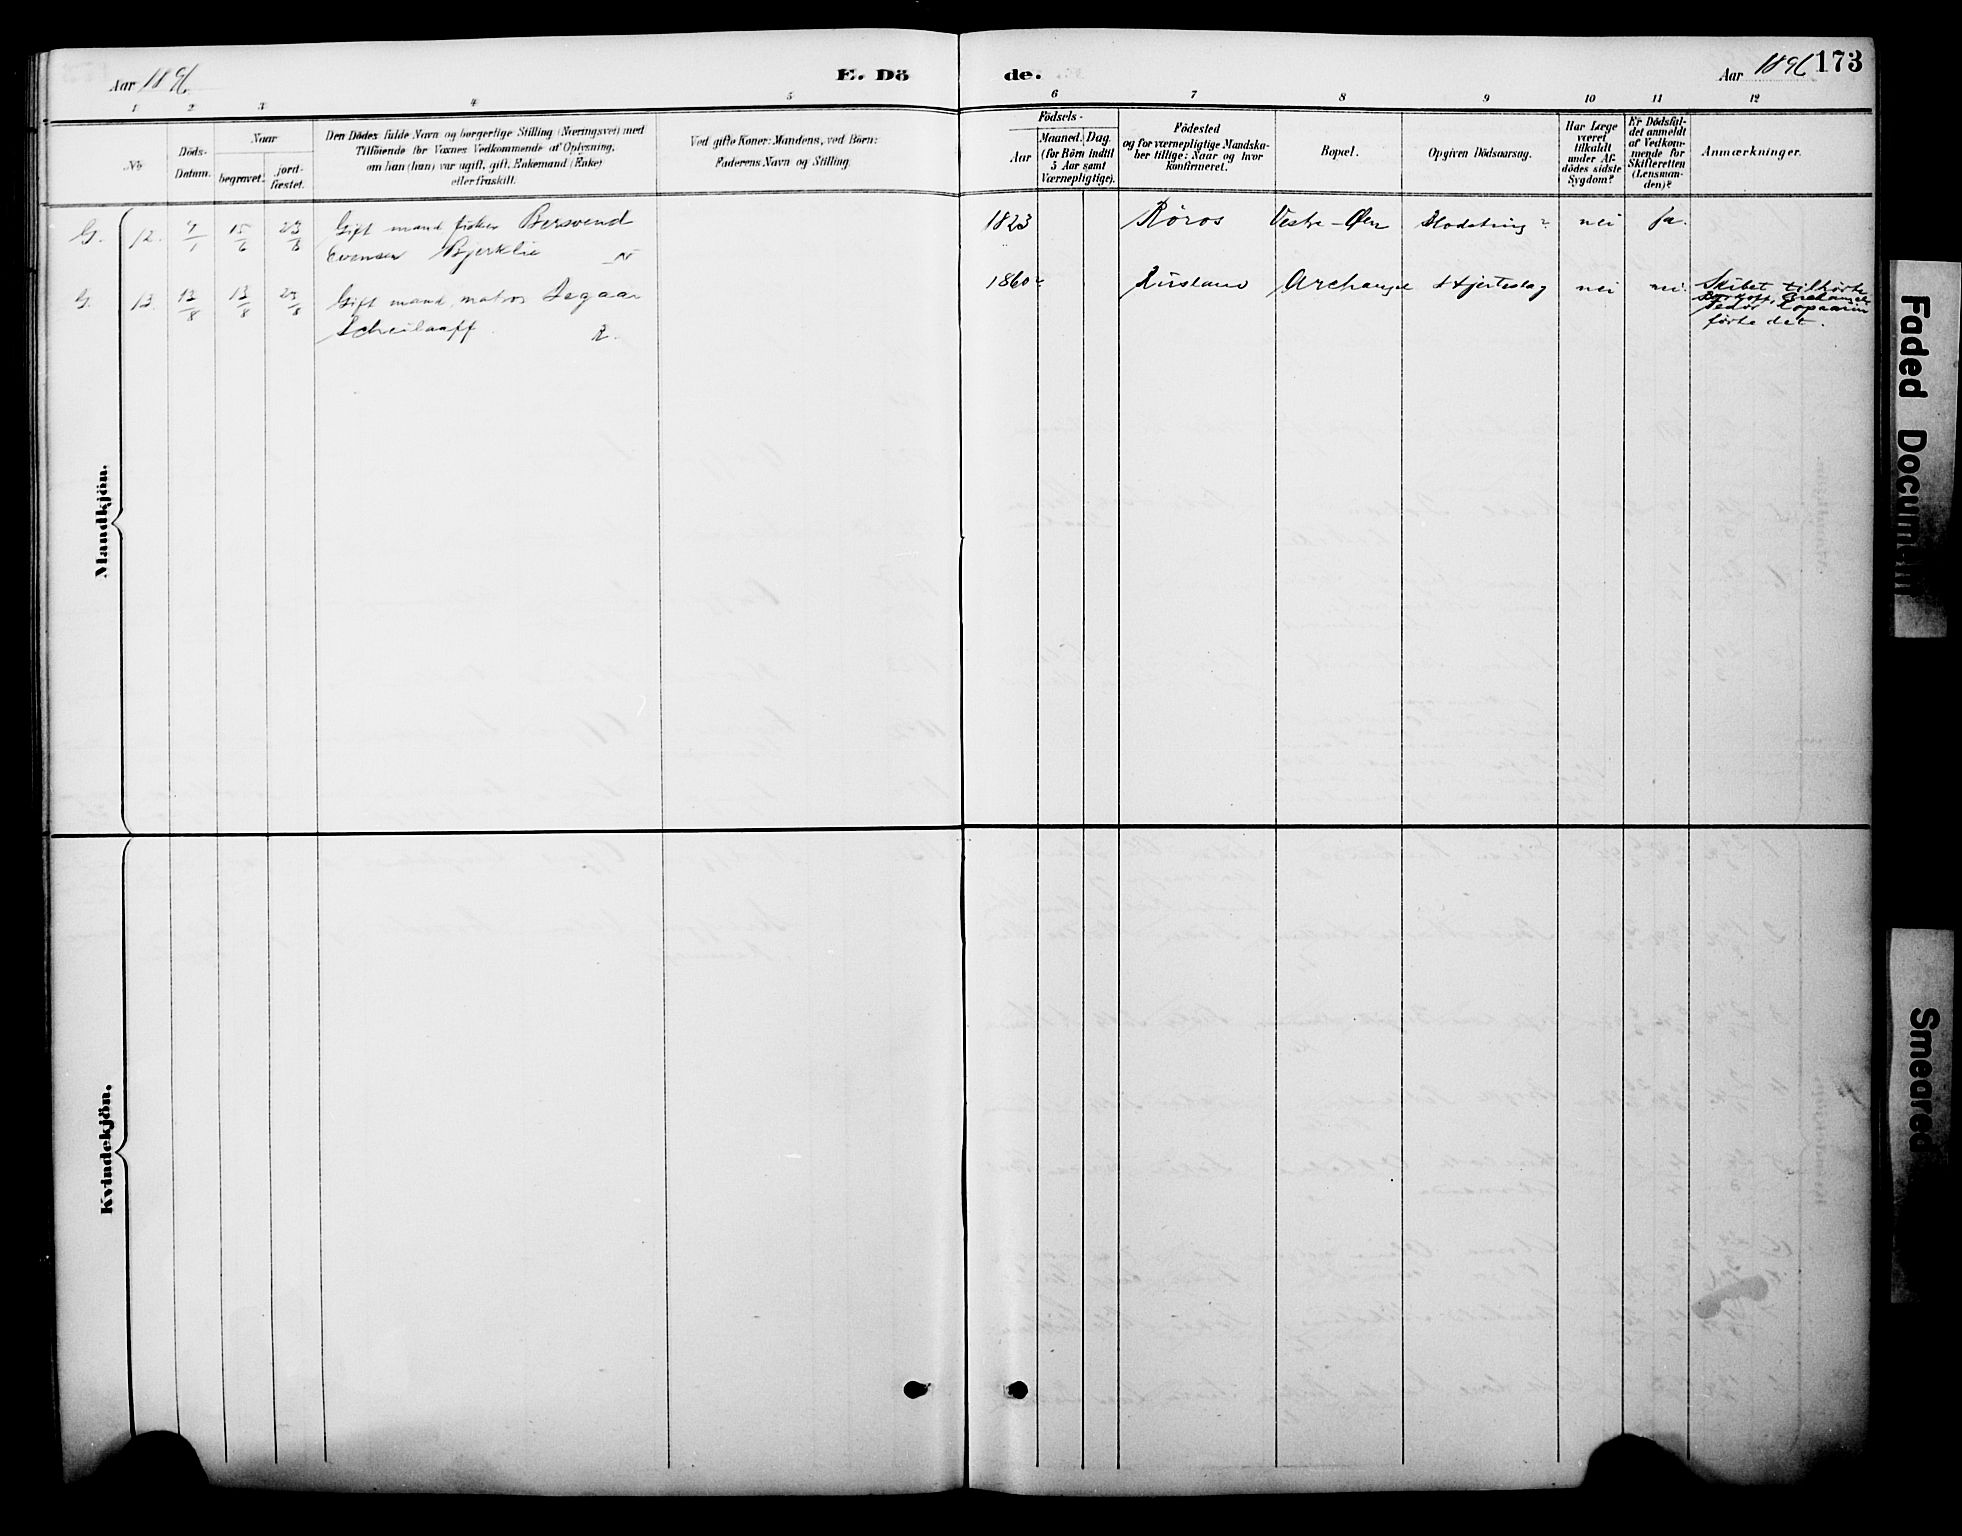 Aar 1896
E. Dö
de.
Aar 1896 173
1 2 3 4 5 6 7 8 9 10 11 12
No
Döds-
Datum.
Naar
begravet.
jord-
fæstet.
Den Dödes fulde Navn og borgerlige Stilling (Næringsvei) med
Tilföiende for Voxnes Vedkommende af Oplysning,
om han (hun) var ugift, gift, Enkemand (Enke)
eller fraskilt.
Ved gifte Koner: Mandens, ved Börn:
Faderens Navn og Stilling.
Födsels-
Aar
Maaned. Dag.
(for Börn indtil
5 Aar samt
Værnepligtige).
Födested
og for værnepligtige Mandska-
ber tillige: Naar og hvor
konfirmeret.
Bopæl.
Opgiven Dödsaarsag.
Har Læge
været
tilkaldt
under Af-
dödes sidste
Sygdom?
Er Dödsfal-
det anmeldt
af Vedkom-
mende for
Skifteretten
(Lensman-
den)?
Anmærkninger.
Mandkjön.
G. 12. 7/1 15/6 23/8 Gift mand fisker Bersvend
Evensen Bjerklie
1823 Röros Vestre-Öen nei ja.
G. 13. 12/8 13/8 23/8 Gift mand, matros
1860 Rusland Archangel Hjerteslag nei nei.
Skibet tilhörte
förte det.
Kvindekjön.
Faded Document
Smeared